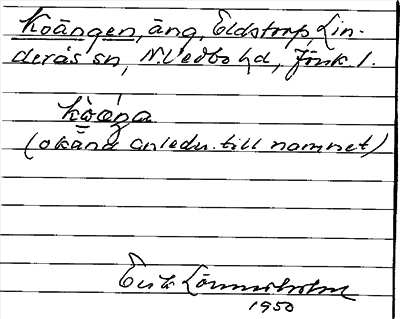 Koängen, äng, Eldstorp, Lin-
derås sn, N.Vedbo hd, Jönk l.
kòáŋa
(okänd anledn. till namnet)
Erik Lönnerholm
1950